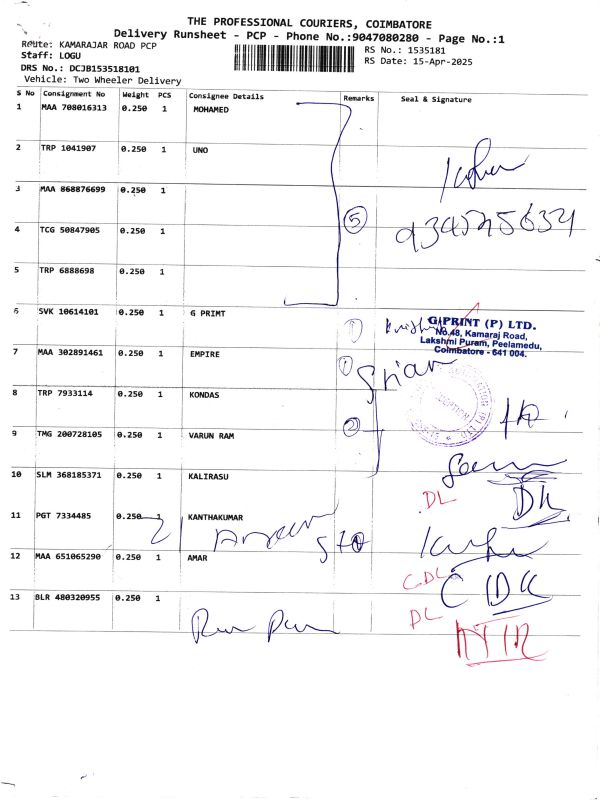 THE PROFESSIONAL COURIERS, COIMBATORE
Delivery Runsheet - PCP - Phone No.:9047080280 - Page No.:1
Route: KAMARAJAR ROAD PCP
Staff: LOGU
DRS No.: DCJB153518101
Vehicle: Two Wheeler Delivery
RS No.: 1535181
RS Date: 15-Apr-2025
S No Consignment No Weight PCS Consignee Details Remarks Seal & Signature
1 MAA 708016313 0.250 1 MOHAMED
2 TRP 1041907 0.250 1 UNO
3 MAA 868876699 0.250 1
5
4 TCG 50847905 0.250 1
5 TRP 6888698 0.250 1
6 SVK 10614101 0.250 1 G PRIMT
1
G-PRINT (P) LTD.
No.48, Kamaraj Road,
Lakshmi Puram, Peelamedu,
Coimbatore - 641 004.
7 MAA 302891461 0.250 1 EMPIRE
1
8 TRP 7933114 0.250 1 KONDAS
2
9 TMG 200728105 0.250 1 VARUN RAM
10 SLM 368185371 0.250 1 KALIRASU
DL
11 PGT 7334485 0.250 1 KANTHAKUMAR
12 MAA 651065290 0.250 1 AMAR
C.DL
13 BLR 480320955 0.250 1
DL